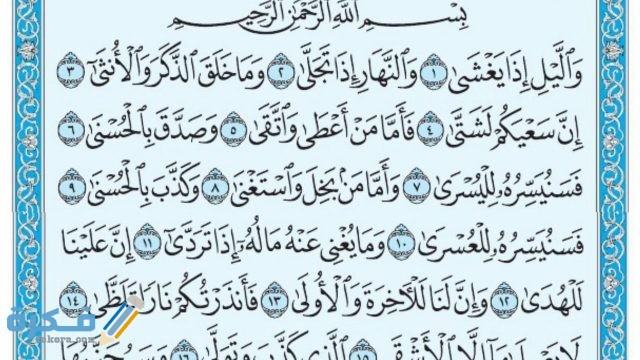 بِسْمِ ٱللَّهِ ٱلرَّحْمَٰنِ ٱلرَّحِيمِ
وَٱلَّيْلِ إِذَا يَغْشَىٰ ١ وَٱلنَّهَارِ إِذَا تَجَلَّىٰ ٢ وَمَا خَلَقَ ٱلذَّكَرَ وَٱلْأُنثَىٰٓ ٣
إِنَّ سَعْيَكُمْ لَشَتَّىٰ ٤ فَأَمَّا مَنْ أَعْطَىٰ وَٱتَّقَىٰ ٥ وَصَدَّقَ بِٱلْحُسْنَىٰ ٦
فَسَنُيَسِّرُهُۥ لِلْيُسْرَىٰ ٧ وَأَمَّا مَنۢ بَخِلَ وَٱسْتَغْنَىٰ ٨ وَكَذَّبَ بِٱلْحُسْنَىٰ ٩
فَسَنُيَسِّرُهُۥ لِلْعُسْرَىٰ ١٠ وَمَا يُغْنِى عَنْهُ مَالُهُۥٓ إِذَا تَرَدَّىٰٓ ١١ إِنَّ عَلَيْنَا
لَلْهُدَىٰ ١٢ وَإِنَّ لَنَا لَلْـَٔاخِرَةَ وَٱلْأُولَىٰ ١٣ فَأَنذَرْتُكُمْ نَارًا تَلَظَّىٰ ١٤
لَا يَصْلَىٰهَآ إِلَّا ٱلْأَشْقَى ١٥ ٱلَّذِى كَذَّبَ وَتَوَلَّىٰ ١٦ وَسَيُجَنَّبُهَا
فكرة